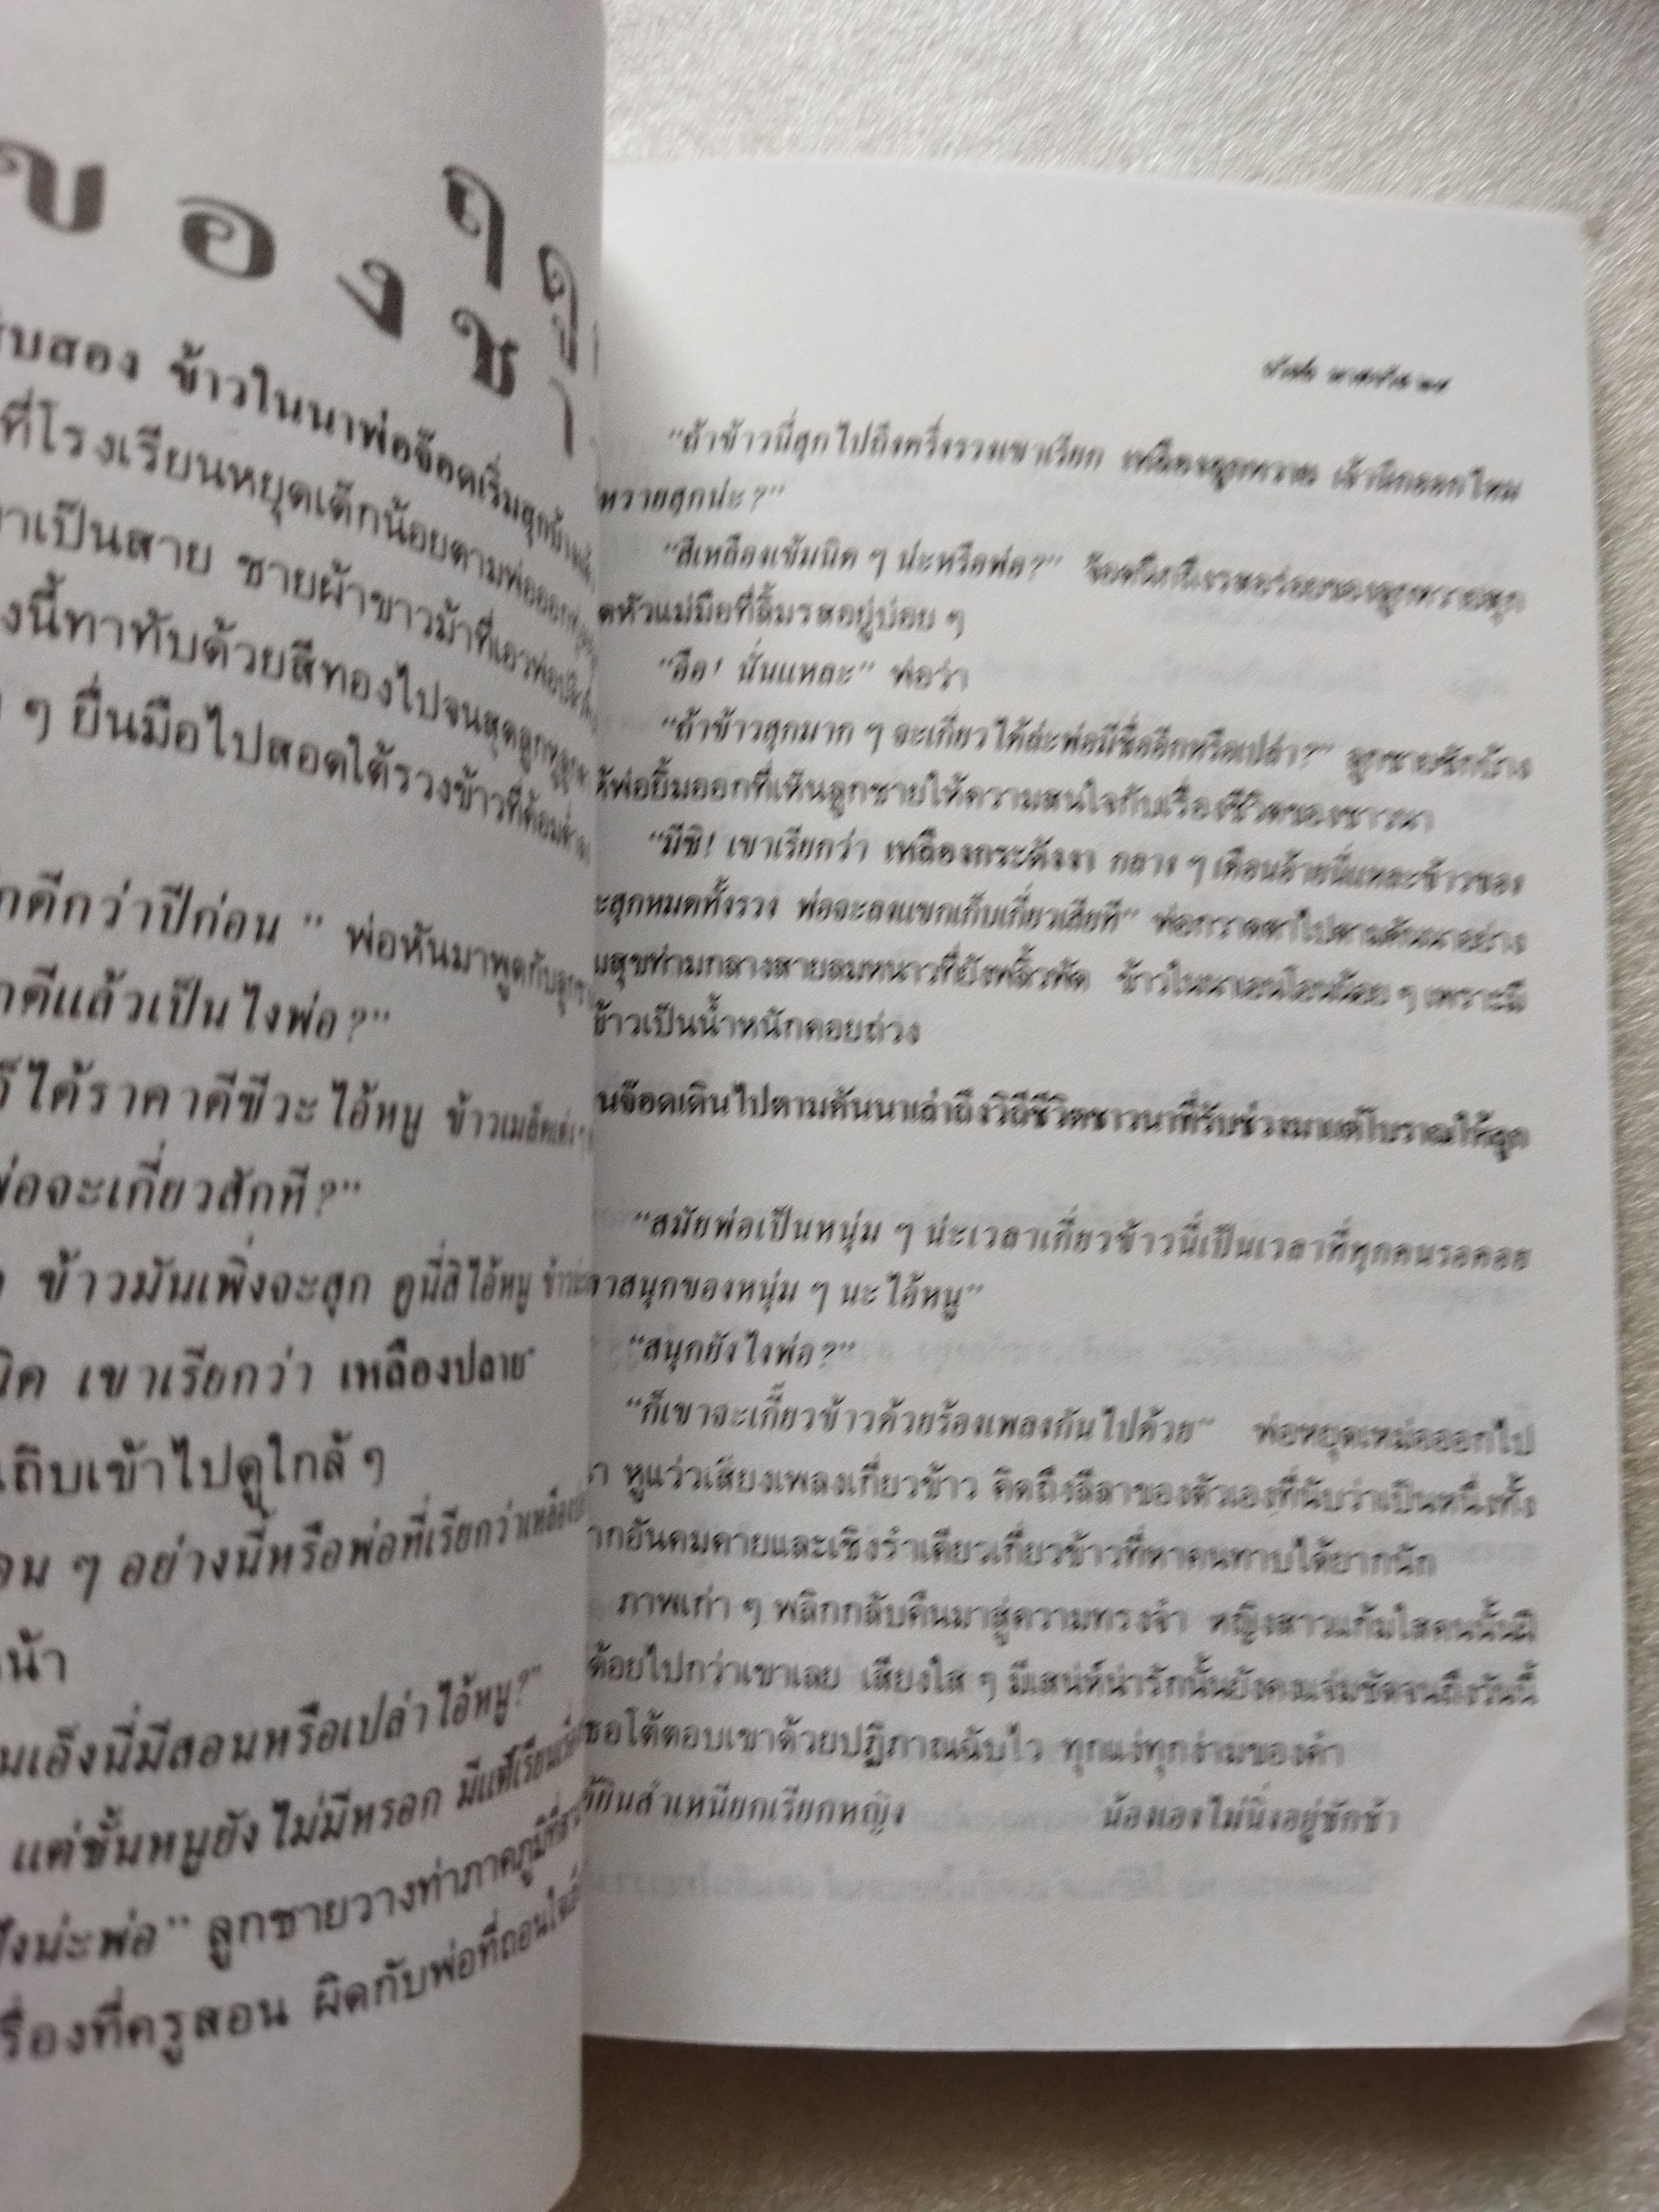 ของ
สิบสอง ข้าวในนาพ่อจ๊อดเริ่มสุก
ที่โรงเรียนหยุดเด็กน้อยตามพ่อออก
าเป็นสาย ชายผ้าขาวม้าที่เอวพ่อ
งนี้ทาทับด้วยสีทองไปจนสุดลูกหู
ๆ ยื่นมือไปสอดใต้รวงข้าวที่ค้อม
กดีกว่าปีก่อน " พ่อหันมาพูดกับลูก
กดีแล้วเป็นไงพ่อ?"
ก็ได้ราคาดีซีวะไอ้หนู ข้าวเมล็ด
พ่อจะเกี่ยวสักที?"
ข้าวมันเพิ่งจะสุก ดูนี่สิไอ้หนู
นิด เขาเรียกว่า เหลืองปลาย"
เถิบเข้าไปดูใกล้ ๆ
อน ๆ อย่างนี้หรือพ่อที่เรียกว่าเหลือง
น้า
มเอ็งนี่มีสอนหรือเปล่าไอ้หนู?"
แต่ชั้นหนูยังไม่มีหรอก มีแต่เรียน
ังน่ะพ่อ" ลูกชายวางท่าภาคภูมิที่
รื่องที่ครูสอน ผิดกับพ่อที่ถอนใจ
"ถ้าข้าวนี่สุกไปถึงครึ่งรวงเขาเรียก เหลืองลูกหวาย เจ้านึกออกไหม
หวายสุกปะ?"
"สีเหลืองเข้มนิด ๆ น่ะหรือพ่อ?" จ้อยนึกถึงรสอร่อยของลูกหวายสุก
ดหัวแม่มือที่ลิ้มรสอยู่บ่อย ๆ
"อือ! นั่นแหละ" พ่อว่า
"ถ้าข้าวสุกมาก ๆ จะเกี่ยวได้ล่ะพ่อมีชื่ออีกหรือเปล่า?" ลูกชายซักบ้าง
ห้พ่อยิ้มออกที่เห็นลูกชายให้ความสนใจกับเรื่องชีวิตของชาวนา
"มีซิ! เขาเรียกว่า เหลืองกระดังงา กลาง ๆ เดือนอ้ายนี่แหละข้าวของ
ะสุกหมดทั้งรวง พ่อจะลงแขกเก็บเกี่ยวเสียที" พ่อกวาดตาไปตามคันนาอย่าง
นสุขท่ามกลางสายลมหนาวที่ยังพลิ้วพัด ข้าวในนาเอนโอนน้อย ๆ เพราะมี
ข้าวเป็นน้ำหนักคอยถ่วง
นจ๊อดเดินไปตามคันนาเล่าถึงวิถีชีวิตชาวนาที่รับช่วงมาแต่โบราณให้ลูก
"สมัยพ่อเป็นหนุ่ม ๆ น่ะเวลาเกี่ยวข้าวนี่เป็นเวลาที่ทุกคนรอคอย
ลาสนุกของหนุ่ม ๆ นะไอ้หนู"
"สนุกยังไงพ่อ?"
"ก็เขาจะเกี่ยวข้าวด้วยร้องเพลงกันไปด้วย" พ่อหยุดเหม่อออกไป
า หูแว่วเสียงเพลงเกี่ยวข้าว คิดถึงลีลาของตัวเองที่นับว่าเป็นหนึ่งทั้ง
ากอันคมคายและเชิงรำเคียวเกี่ยวข้าวที่หาคนทาบได้ยากนัก
ภาพเก่า ๆ พลิกกลับคืนมาสู่ความทรงจำ หญิงสาวแก้มใสคนนั้นมี
ด้อยไปกว่าเขาเลย เสียงใส ๆ มีเสน่ห์น่ารักนั้นยังคงแจ่มชัดจนถึงวันนี้
ธอโต้ตอบเขาด้วยปฏิภาณฉับไว ทุกแง่ทุกง่ามของคำ
ด้ยินสำเหนียกเรียกหญิง น้องเองไม่นิ่งอยู่ชักช้า